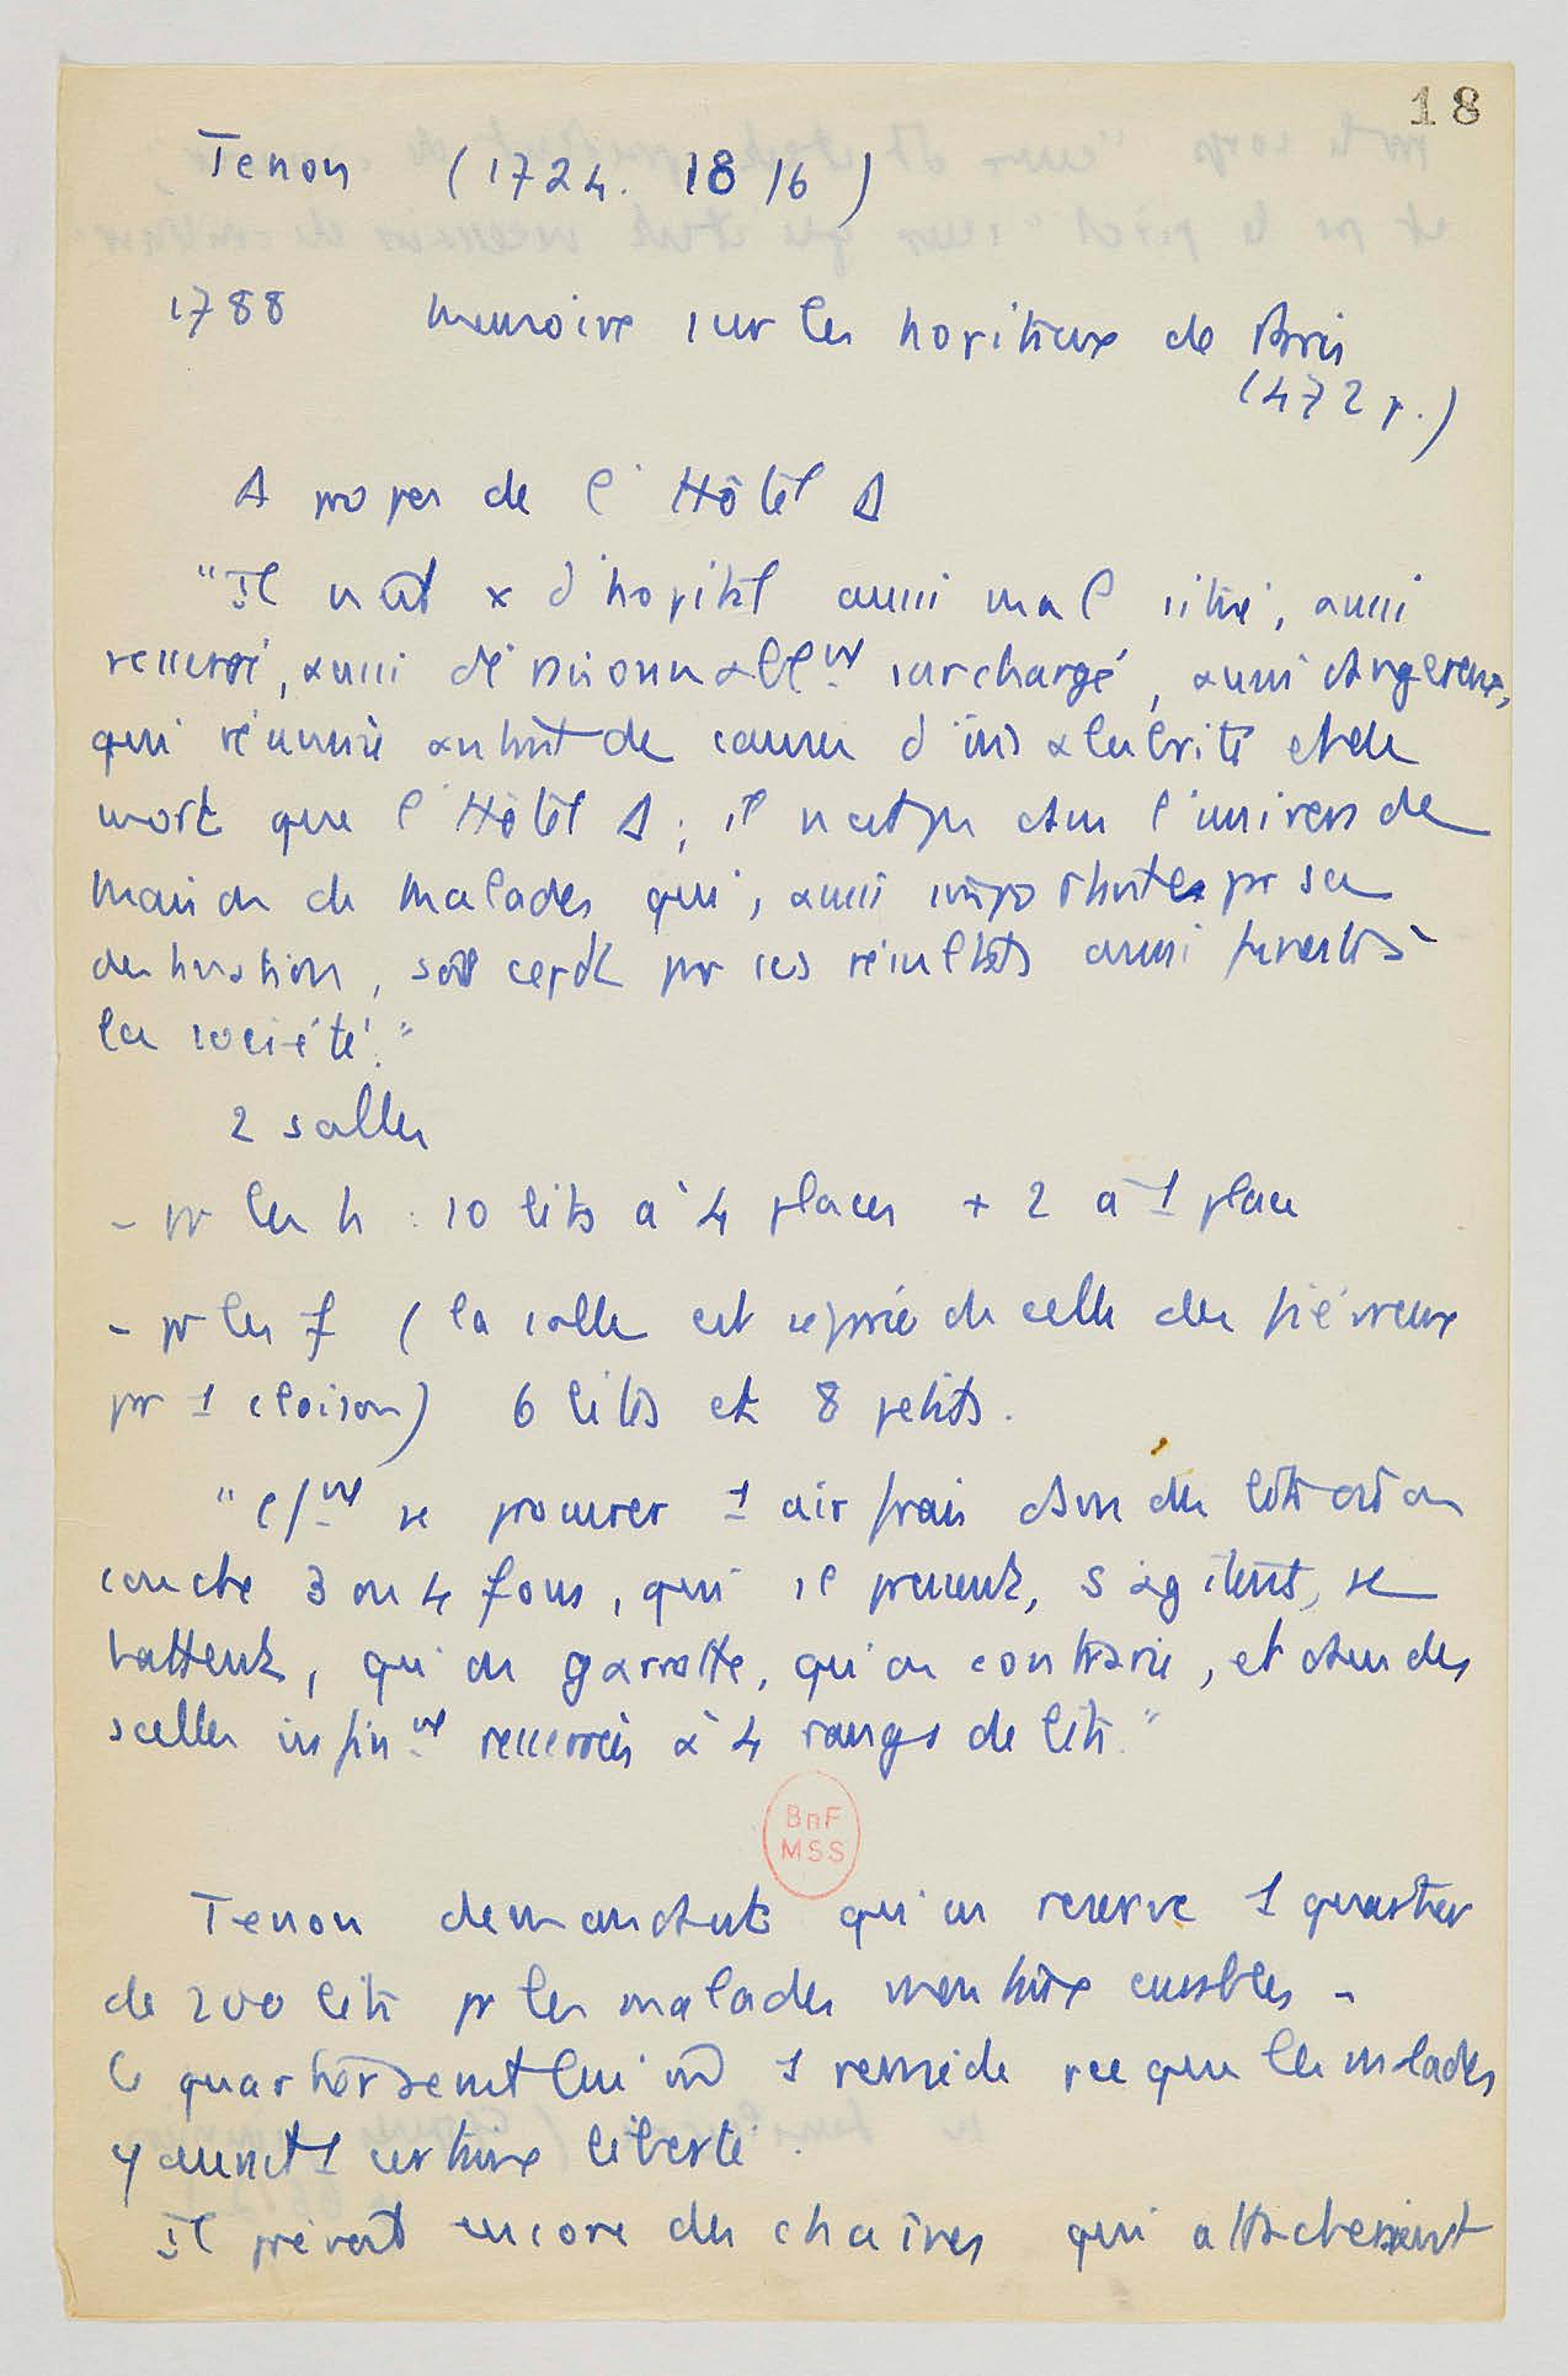 18
Tenon (1724. 1816)
1788 Memoire sur les hopitaux de Paris
(472 p.)
A propos de l'Hôtel D
"Il n'est x d'hopital aussi mal situé, aussi
resserré, aussi déraisonnablemt surchargé, aussi dangereux,
qui réunisse autant de causes d'insalubrité et de
mort que l'Hôtel D ; il n'est pas dans l'univers de
maison de malades qui, aussi importante par sa
destination, soit cepdt par ses résultats aussi funeste à
la société."
2 salles
- pr les h : 10 lits à 4 places + 2 à 1 place
- pr les f (la salle est séparée de celle des fiévreux
par 1 cloison) 6 lits et 8 petits.
" se procurer 1 air frais dans des lits où on
couche 3 ou 4 fous, qui se pressent, s'agitent, se
battent, qu'on garrotte, qu'on contrarie, et dans des
salles infinmt resserrées à 4 rangs de lits."
BnF
MSS
Tenon demandait qu'on reserve 1 quartier
de 200 lits pr les malades mentaux curables -
le quartier serait lui m 1 remède pce que les malades
y auraient 1 certaine liberté.
Il prévoit encore des chaînes qui attacheraient